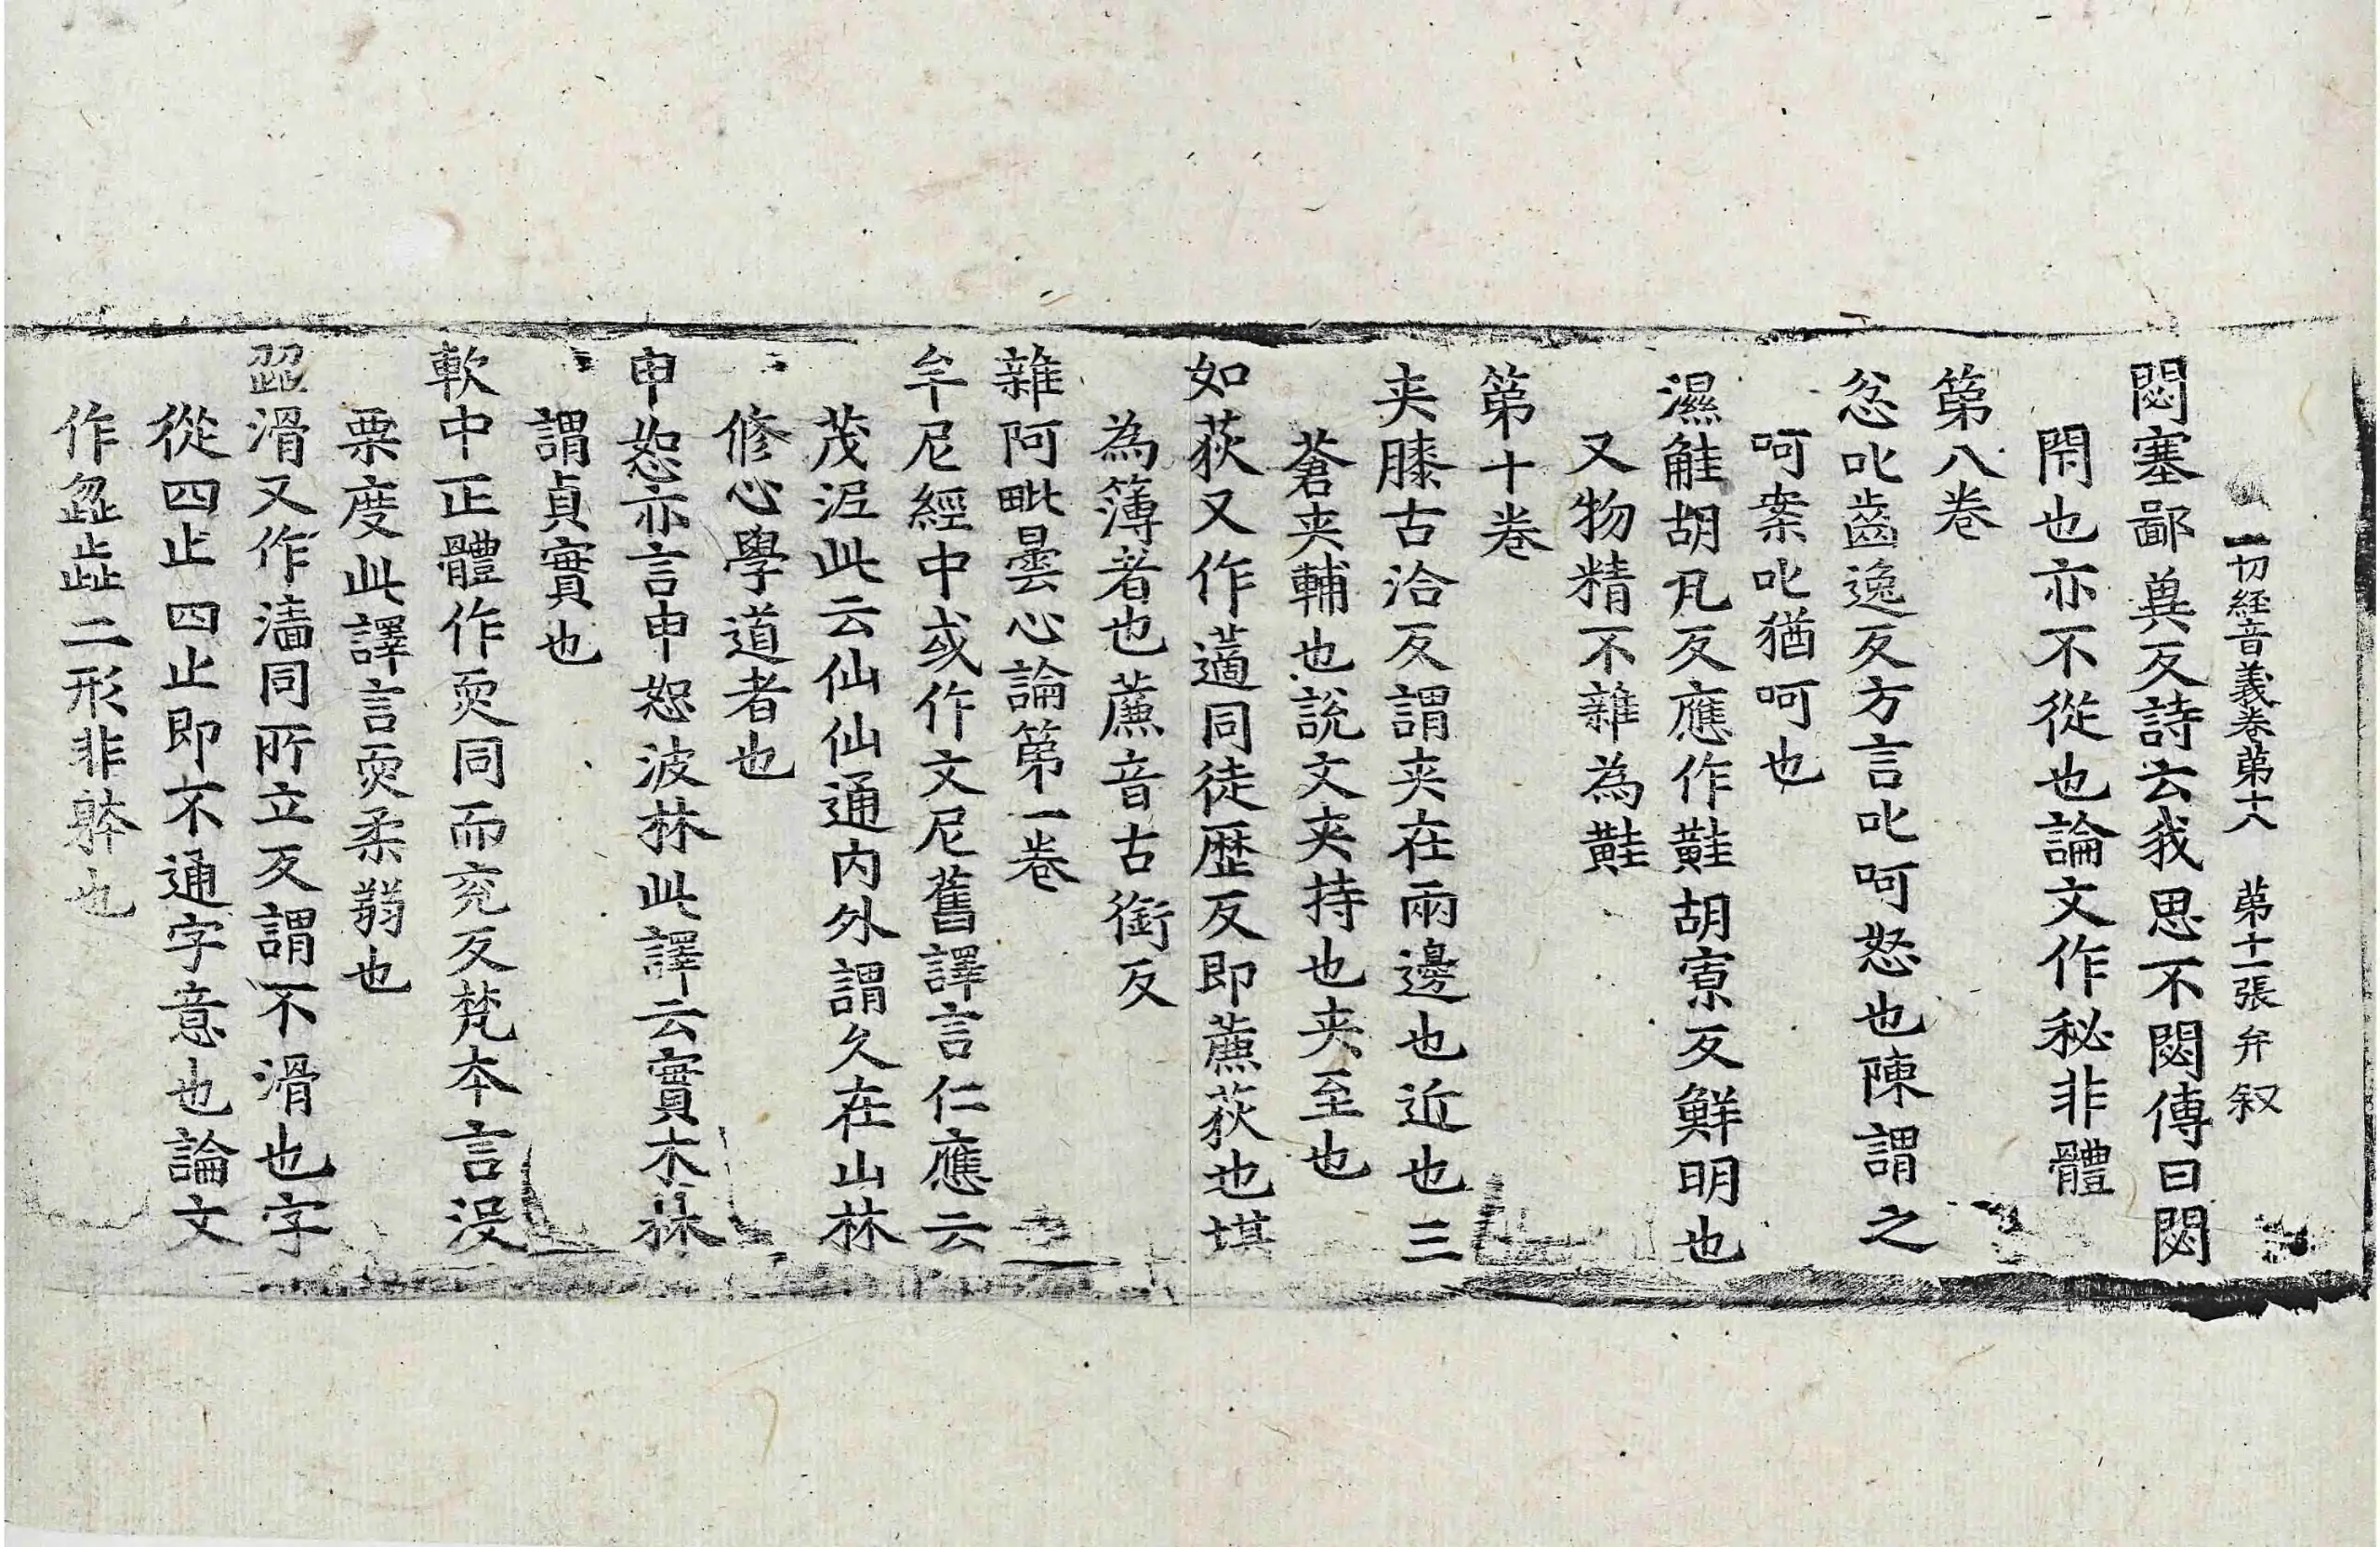 一切経音義卷第十八　第十一張　弁　叙
閟塞鄙兾反詩云我思不閟傳曰閟
閇也亦不從也論文作秘非體
第八卷
忿叱齒逸反方言叱呵怒也陳謂之
呵案叱猶呵也
濕觟胡凡反應作黊胡寡反鮮明也
又物精不雜為黊
第十卷
夾膝古洽反謂夾在兩邊也近也三
蒼夾輔也說文夾持也夾至也
如荻又作藡同徒歷反即薕荻也堪
為簿者也薕音古銜反
雜阿毗曇心論第一卷
牟尼經中或作文尼舊譯言仁應云
茂泥此云仙仙通內外謂久在山林
修心學道者也
申恕亦言申恕波林此譯云實木林
謂貞實也
軟中正體作耎同而兖反梵本言沒
栗度此譯言耎柔弱也
歰滑又作濇同所立反謂不滑也字
從四止四止即不通字意也論文
作歮澁二形非躰也